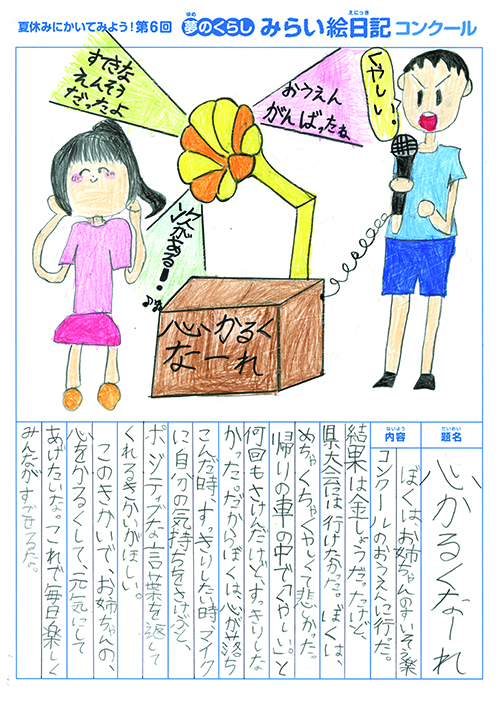 夏休みにかいてみよう！第6回 夢のくらし みらい絵日記 コンクール
ゆめ
えにっき
すてきな
えんそう
だったよ
おうえん
がんばったね
くやしい！。
次がある！
心かるく
なーれ
だいめい
題名
心かるくなーれ
ないよう
内容
ぼくは、お姉ちゃんのすいそう楽
コンクールのおうえんへ行た。
結果は金しょうだったけど、
県大会は行けなかった。ぼくは、
めちゃくちゃくやしくて悲かった。
帰りの車の中で「くやしい。」と
何回もさけんだけど、すっきりしな
かった。だからぼくは、心が落ち
こんだ時、すっきりしたい時、マイク
に自分の気持ちをさけぶと、
ポジティブな言葉を返して
くれるきかいがほしい。
このきかいで、お姉ちゃんの、
心をかるくして、元気にして
あげたいな。これで毎日楽しく
みんながすごせるな。